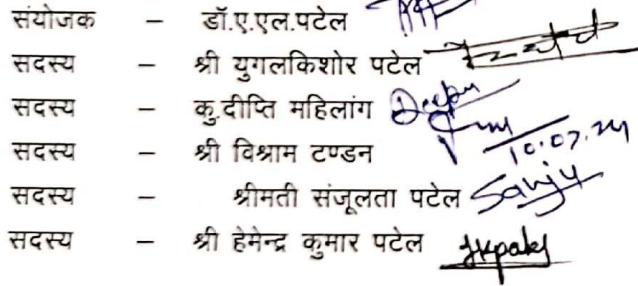 संयोजक – डॉ.ए.एल.पटेल
सदस्य – श्री युगलकिशोर पटेल
सदस्य – कु.दीप्ति महिलांग
सदस्य – श्री विश्राम टण्डन 10.07.24
सदस्य – श्रीमती संजूलता पटेल Sanju
सदस्य – श्री हेमेन्द्र कुमार पटेल